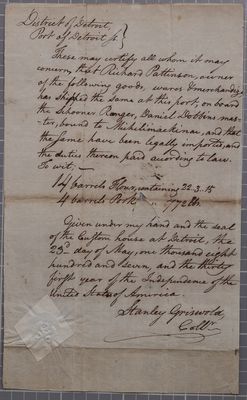 District of Detroit,
Port of Detroit ss.
These may certify all whom it may
concern, that Richard Pattinson, owner
of the following goods, wares & merchandize
has shipped the same at this port, on board
the Schooner Ranger, Daniel Dobbins mas-
ter, bound to Michilimackinac, and that
the same have been legally imported, and
the duties thereon paid according to law.
To wit; —
14 barrels Flour, containing 22.3.15
4 barrels Pork
Given under my hand and the seal
of the Custom house at Detroit, the
23d day of May, one thousand eight
hundred and seven, and the thirty
first year of the Independence of the
United States of America.
Stanley Griswold
Collr.